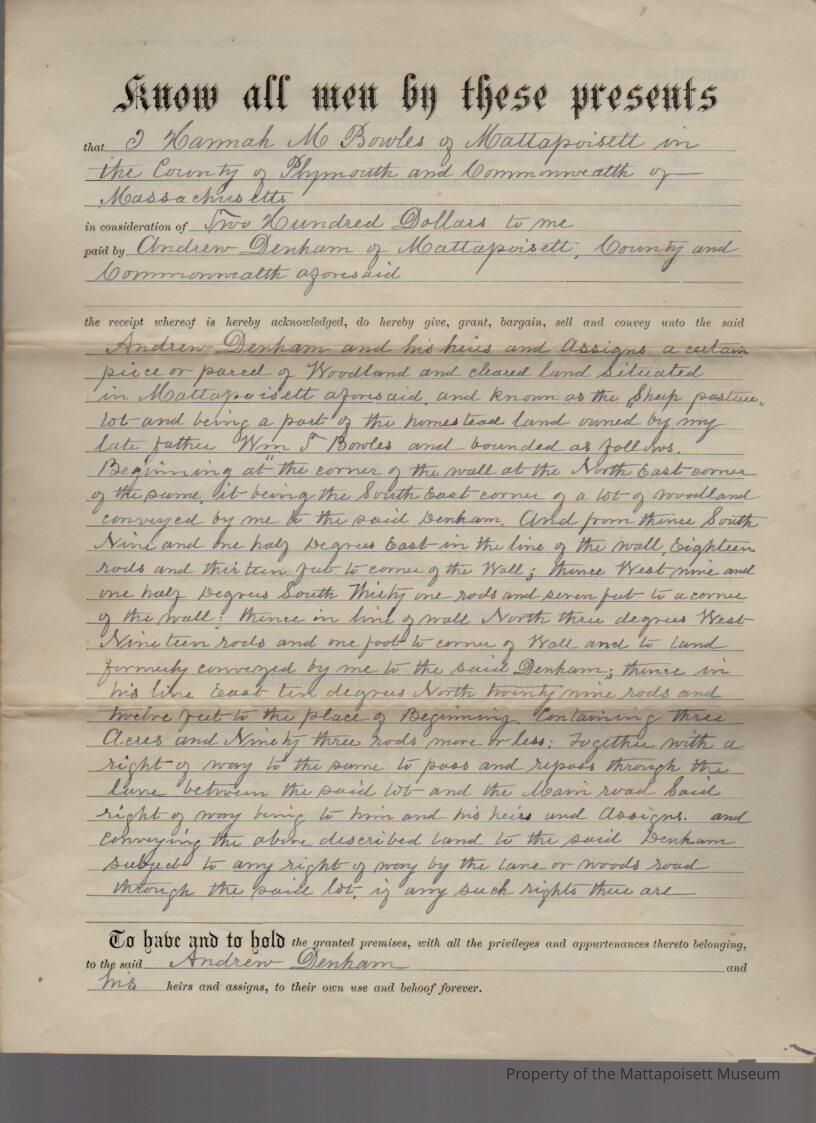 Know all men by these presents
that I Hannah M Bowles of Mattapoisett in
the County of Plymouth and Commonwealth of
Massachusetts
in consideration of Two Hundred Dollars to me
paid by Andrew Denham of Mattapoisett, County and
Commonwealth aforesaid
the receipt whereof is hereby acknowledged, do hereby give, grant, bargain, sell and convey unto the said
Andrew Denham and his heirs and Assigns a certain
piece or parcel of Woodland and cleared land situated
in Mattapoisett aforesaid, and known as the Sheep pasture,
lot and being a part of the homestead land owned by my
late father Wm T Bowles and bounded as follows.
Beginning at the corner of the wall at the North East corner
of the same, it being the South East corner of a lot of woodland
conveyed by me to the said Denham, And from thence South
Nine and one half Degrees East in the line of the wall, Eighteen
rods and thirteen feet to corner of the Wall; thence West nine and
one half Degrees South Thirty one rods and seven feet to a corner
of the wall; thence in line of wall North three degrees West
Nineteen rods and one foot to corner of Wall and to land
formerly conveyed by me to the said Denham; thence in
his line East ten degrees North twenty nine rods and
twelve feet to the place of Beginning. Containing three
Acres and Ninety three rods more or less: Together with a
right of way to the same to pass and repass through the
lane between the said lot and the Main road Said
right of way being to him and his heirs and Assigns. and
Conveying the above described land to the said Denham
subject to any right of way by the lane or woods road
through the said lot, if any such rights there are
To have and to hold the granted premises, with all the privileges and appurtenances thereto belonging,
to the said Andrew Denham and
his heirs and assigns, to their own use and behoof forever.
Property of the Mattapoisett Museum